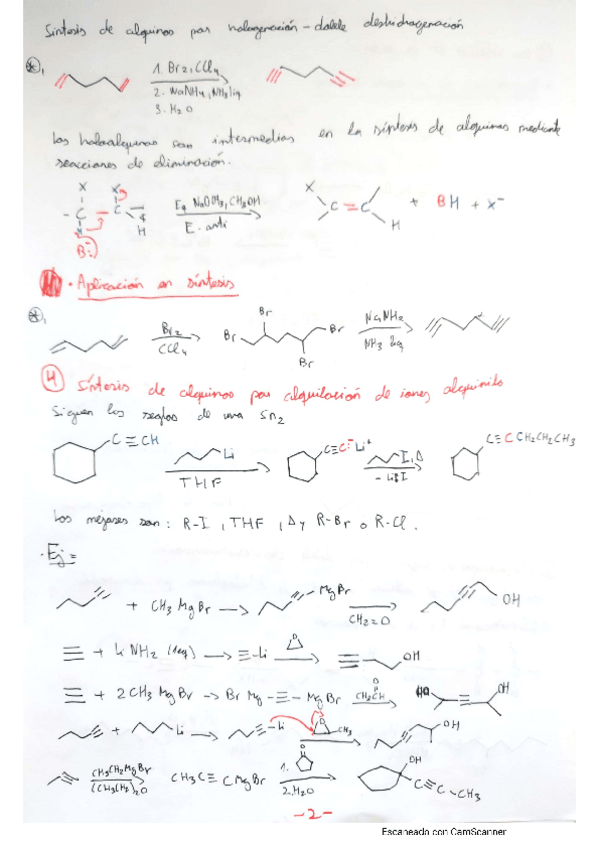 Síntesis de alquinos por halogenación - doble deshidrogenación
1. Br2, CCl4
2. NaNH2, NH3 liq
3. H2O
Los haloalquenos son intermedios en la síntesis de alquinos mediante
reacciones de eliminación.
X X
- C - C -
H H
B:-
Eq NaOCH3, CH3OH
E. anti
X C = C H + BH + X-
· Aplicación en síntesis
Br2
CCl4
Br Br Br Br
NaNH2
NH3 liq
4 Síntesis de alquinos por alquilación de iones alquinilo
Siguen las reglas de una Sn2
C ≡ CH
Li
THF
C≡C- Li+
I, Δ
- LiI
C≡C CH2CH2CH3
Los mejores son: R-I, THF, Δ y R-Br o R-Cl.
· Ej =
+ CH3MgBr → MgBr CH2=O OH
≡ + LiNH2 (1eq) → ≡-Li O OH
≡ + 2CH3MgBr → BrMg-≡-MgBr CH3CH O HO OH
+ Li → Li O CH3 OH
CH3CH2MgBr
(CH3CH2)2O
CH3C≡CMgBr
1. O
2. H2O
OH
C≡C-CH3
-2-
Escaneado con CamScanner